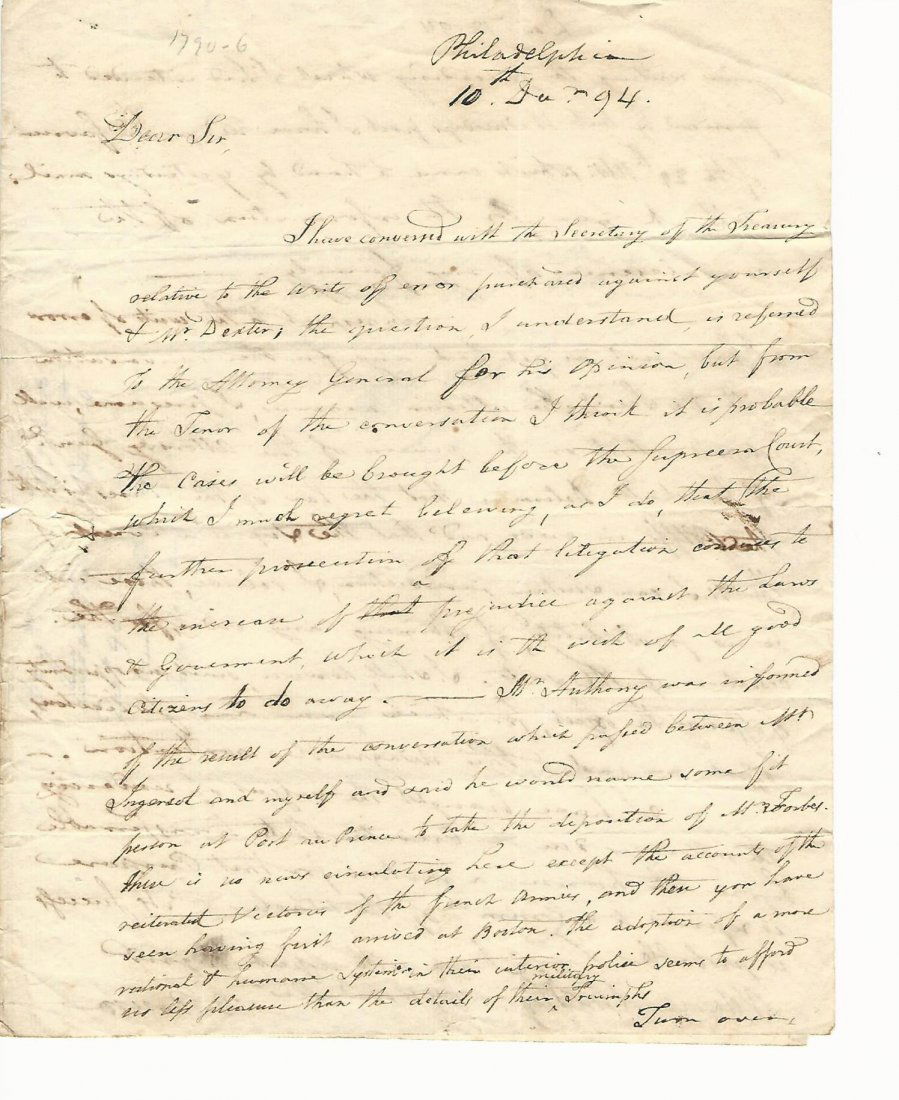 1790-6
Philadelphia
10th Decr 94.
Dear Sir,
I have conversed with the Secretary of the Treasury
relative to the writs of error purchased against yourself
& Mr. Dexter; the question, I understand, is referred
to the Attorney General for his opinion, but from
the Tenor of the conversation I think it is probable
the cases will be brought before the Supreem Court,
which I much regret beleiving, as I do, that the
further prosecution of that litigation conduces to
the increase of that a prejudice against the Laws
& Goverment, which it is the wish of all good
citizens to do away. — Mr. Anthony was informed
of the result of the conversation which passed between Mr
Ingersol and myself and said he would name some fit
person at Port au Prince to take the deposition of Mr. Forbes.
there is no news circulating here except the accounts of the
reiterated Victories of the french Armies, and these you have
seen having first arrived at Boston. the adoption of a more
rational & humane System in their interior police seems to afford
no less pleasure than the details of their military Triumphs
Turn over,